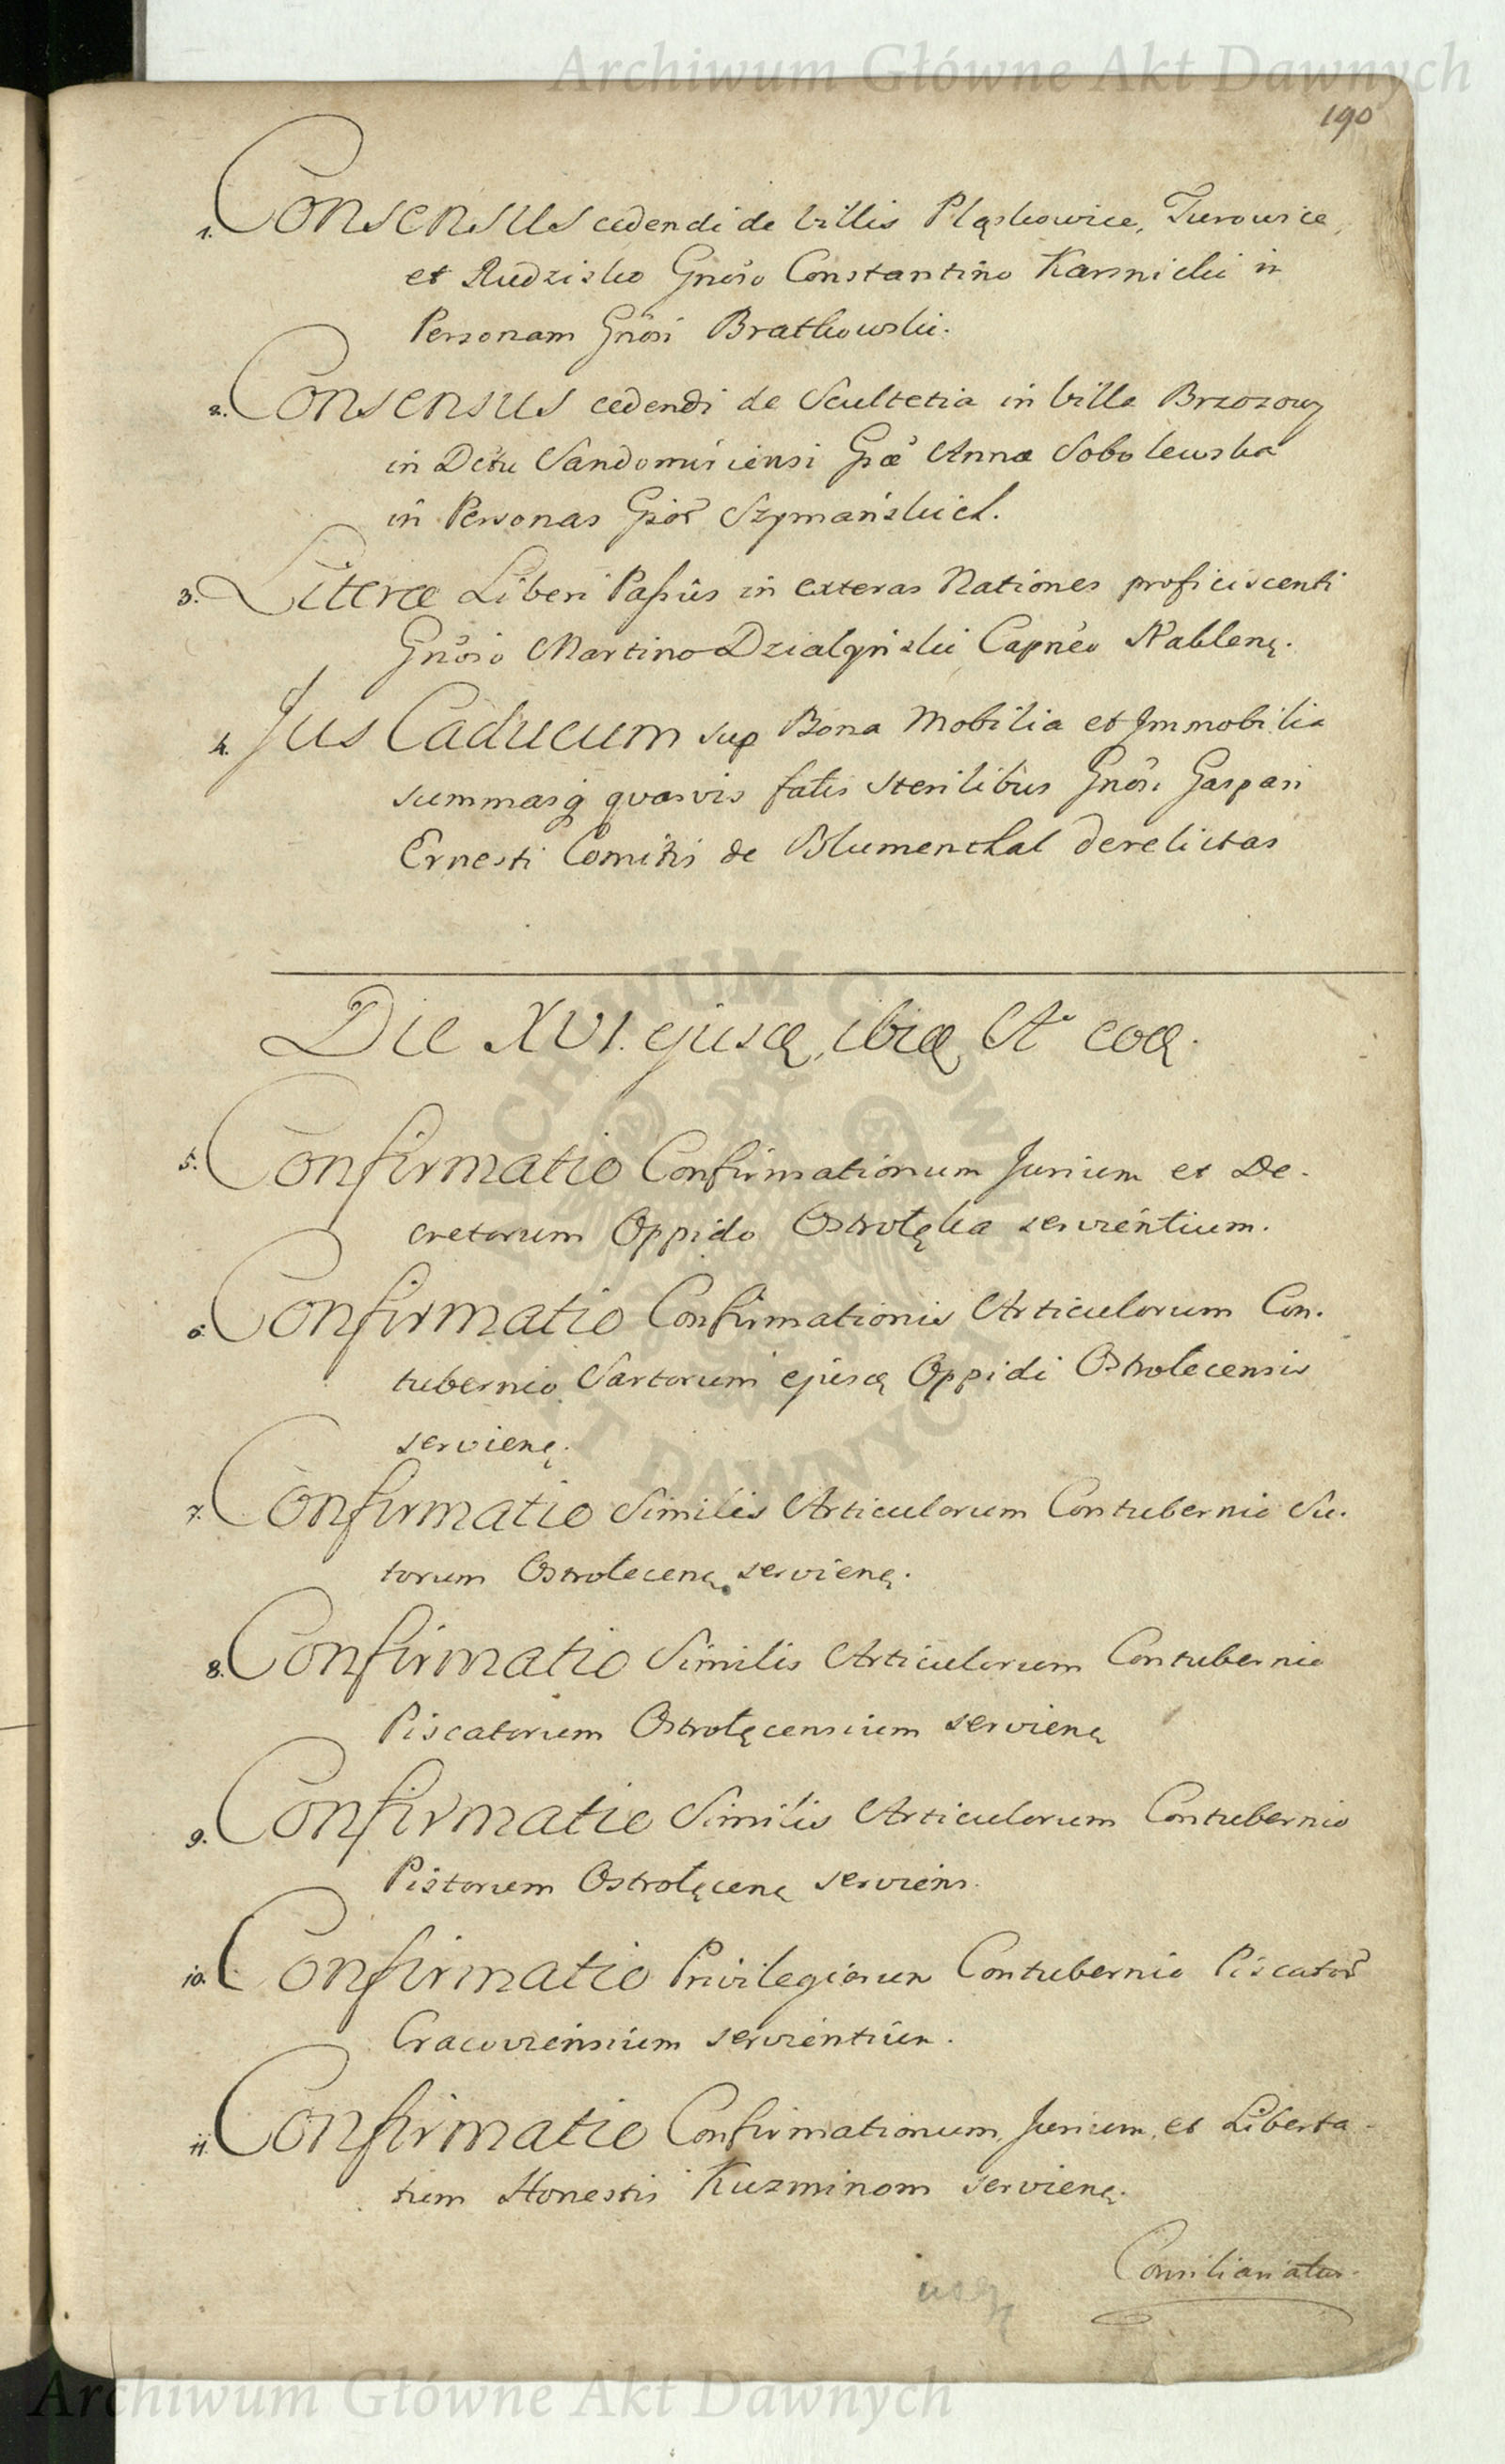 Archiwum Główne Akt Dawnych
190
1. Consensus cedendi de Villis Pląskowice, Turowice,
et Rudzisko Gnoso Constantino Karsnicki in
Personam Gnosi Bratkowski.
2. Consensus cedendi de Scultetia in Villa Brzozowy
in Dctu Sandomiriensi Gsæ Annæ Sobolewska
in Personas Gsior Szymańskich.
3. Literæ Liberi Paßus in exteras Nationes proficiscenti
Gnoso Martino Dzialyński Capneo
4. Jus Caducum sup Bona Mobilia et Immobilia
summasq quasvis fatis sterilibus Gnosi Gaspari
Ernesti Comitis de Blumenthal derelictas
Die XVI. ejusq, ibiq, Ao eoq.
5. Confirmatio Confirmationum Jurium et De-
cretorum Oppido Ostrołęka servientium.
6. Confirmatio Confirmationis Articulorum Con-
tubernio Sartorum ejusq Oppidi Ostrolecensis
servienę.
7. Confirmatio Similis Articulorum Contubernio Su-
torum Ostrolecenę servienę.
8. Confirmatio Similis Articulorum Contubernio
Piscatorum Ostrołęcensium servienę
9. Confirmatio Similis Articulorum Contubernio
Pistorum Ostrołęcenę serviens.
10. Confirmatio Privilegiorum Contubernio Piscator
Cracoviensium servientium.
11. Confirmatio Confirmationum, Jurium, et Liberta-
tum Honestis Kuzminom servienę.
Consiliariatus.
usq
Archiwum Główne Akt Dawnych